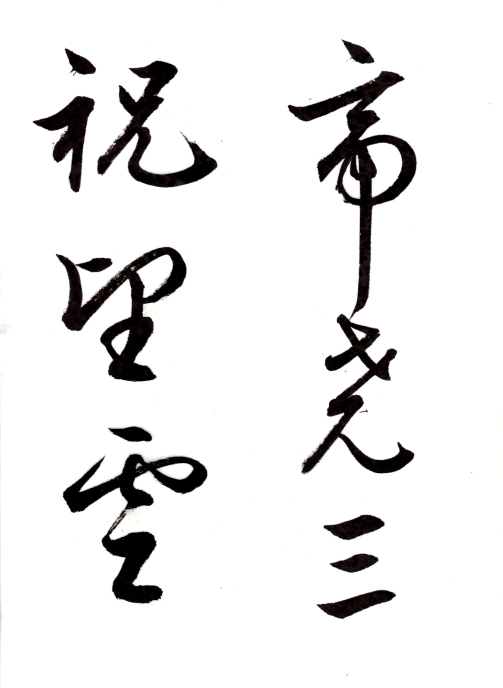 帝尧三
祝望雲